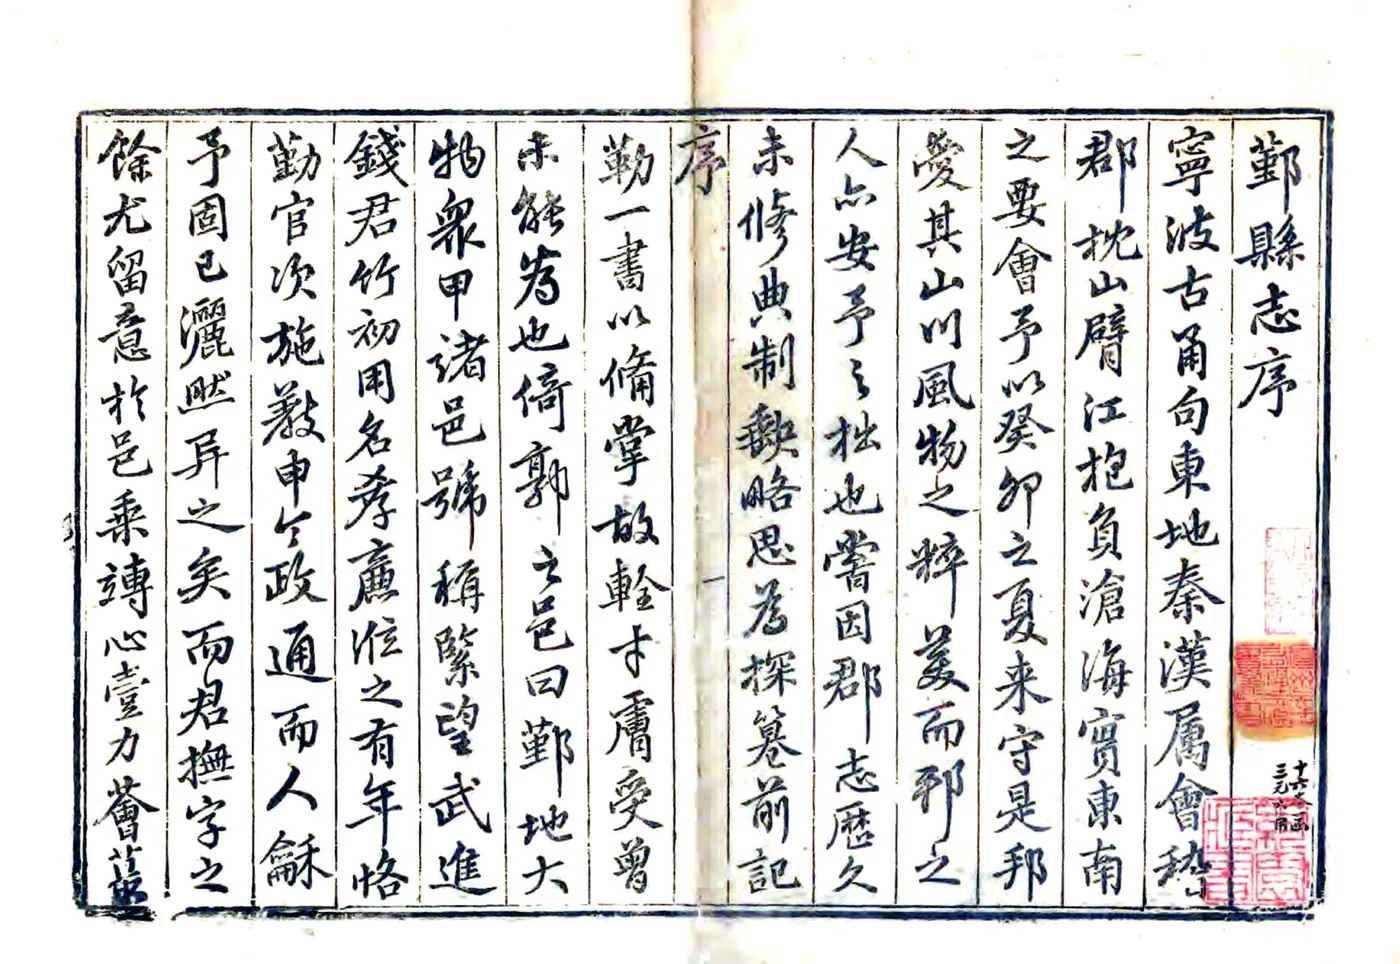 鄞縣志序
寧波古甬句東地秦漢属會稽
郡枕山臂江抱負滄海實東南
之要會予以癸卯之夏来守是邦
愛其山川風物之粹美而邦之
人亦安予之拙也嘗因郡志歷久
未修典制缺略思為探篹前記
序
一
勒一書以備掌故輇才膚受曾
未能為也倚郭之邑曰鄞地大
物衆甲諸邑號稱緊望武進
錢君竹初用名孝廉涖之有年恪
勤官次施敎申令政通而人龢
予固已灑然异之矣而君撫字之
餘尤留意於邑乘竱心壹力薈萃